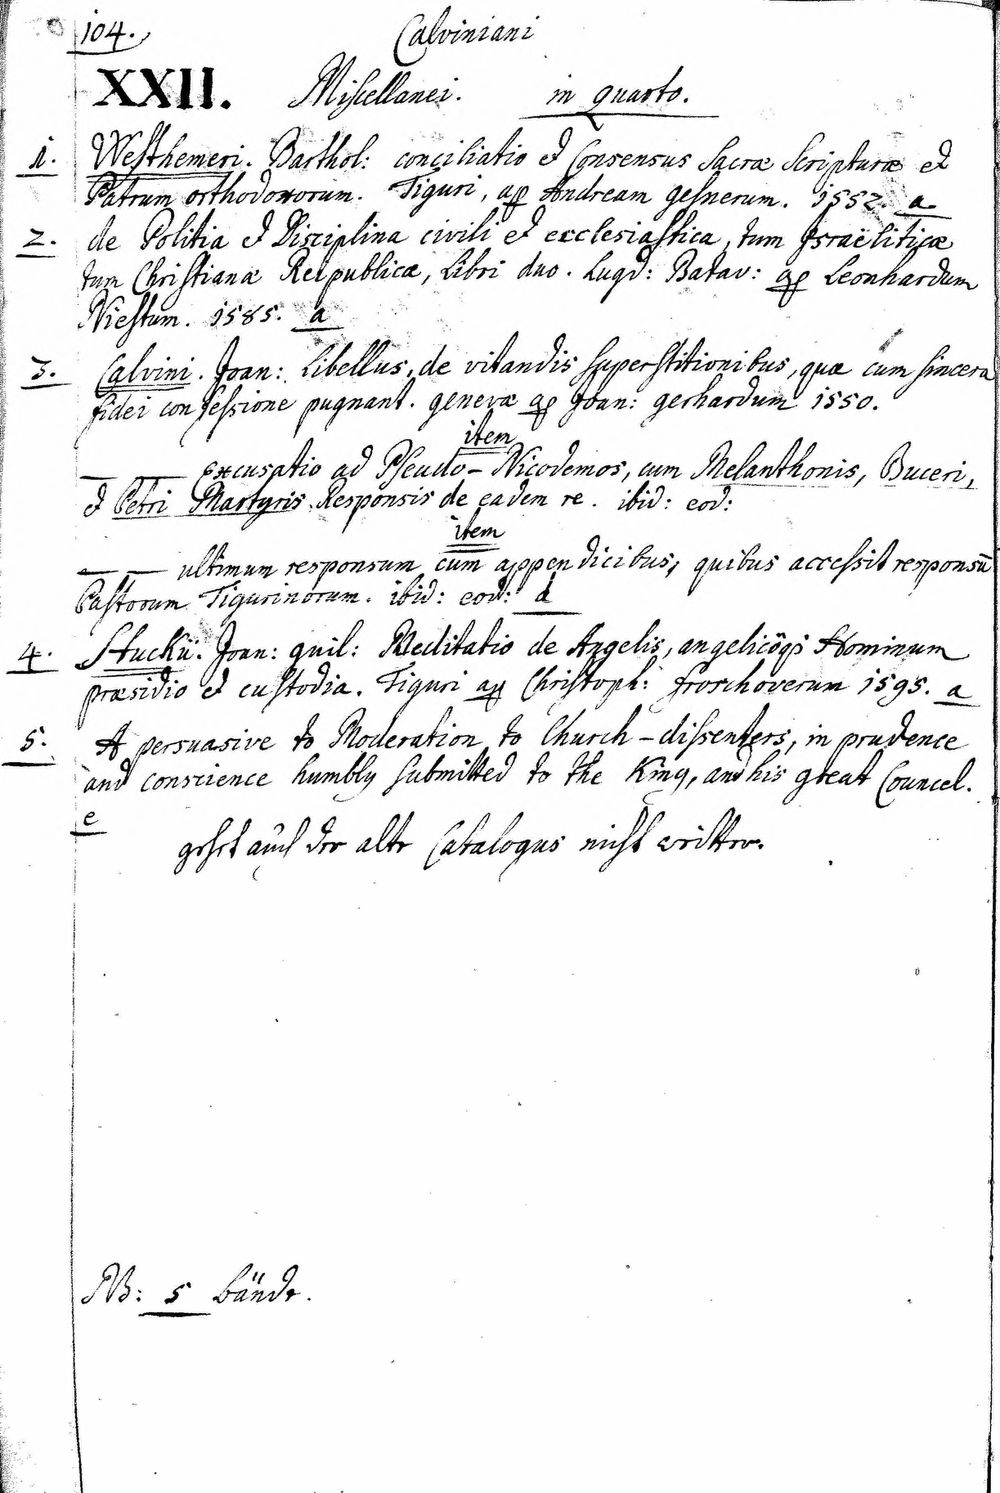 104.
Calviniani
XXII. Miscellanei. in quarto.
1. Westhemeri. Barthol: conciliatio et Consensus Sacræ Scripturæ et
Patrum orthodoxorum. Tiguri, ap Andream gesnerum. 1552. a
2. de Politia et Disciplina civili et ecclesiastica, tum Israëliticæ
tum Christianæ Reipublicæ, Libri duo. Lugd: Batav: ap Leonhardum
Niestum. 1585. a
3. Calvini. Joan: Libellus, de vitandis superstitionibus, quæ cum sincera
fidei confessione pugnant. genevæ ap Joan: gerhardum 1550.
item
— — Excusatio ad Pseudo-Nicodemos, cum Melanthonis, Buceri,
et Petri Martyris Responsis de eadem re. ibid: eod:
item
— — ultimum responsum cum appendicibus, quibus accessit responsū
Pastorum Tigurinorum. ibid: eod: a
4. Stuckii. Joan: guil: Meditatio de Angelis, angelicoq3 Hominum
præsidio et custodia. Tiguri ap Christoph: froschoverum 1595. a
5. A persuasive to Moderation to Church-dissenters, in prudence
and conscience humbly submitted to the King, and his great Councel.
e
gehet auch der alte Catalogus nicht weitter.
NB: 5 bände.